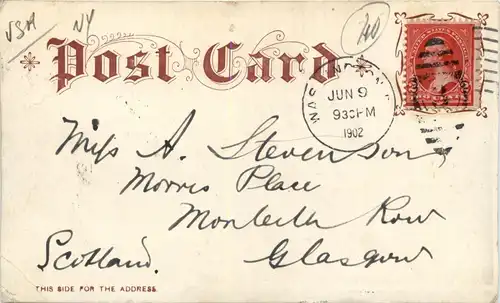 USA
NY
20
Post Card
WASHINGTON
JUN 9
930PM
1902
Miss A. Stevenson
Morris Place
Monteith Row
Glasgow
Scotland.
THIS SIDE FOR THE ADDRESS.